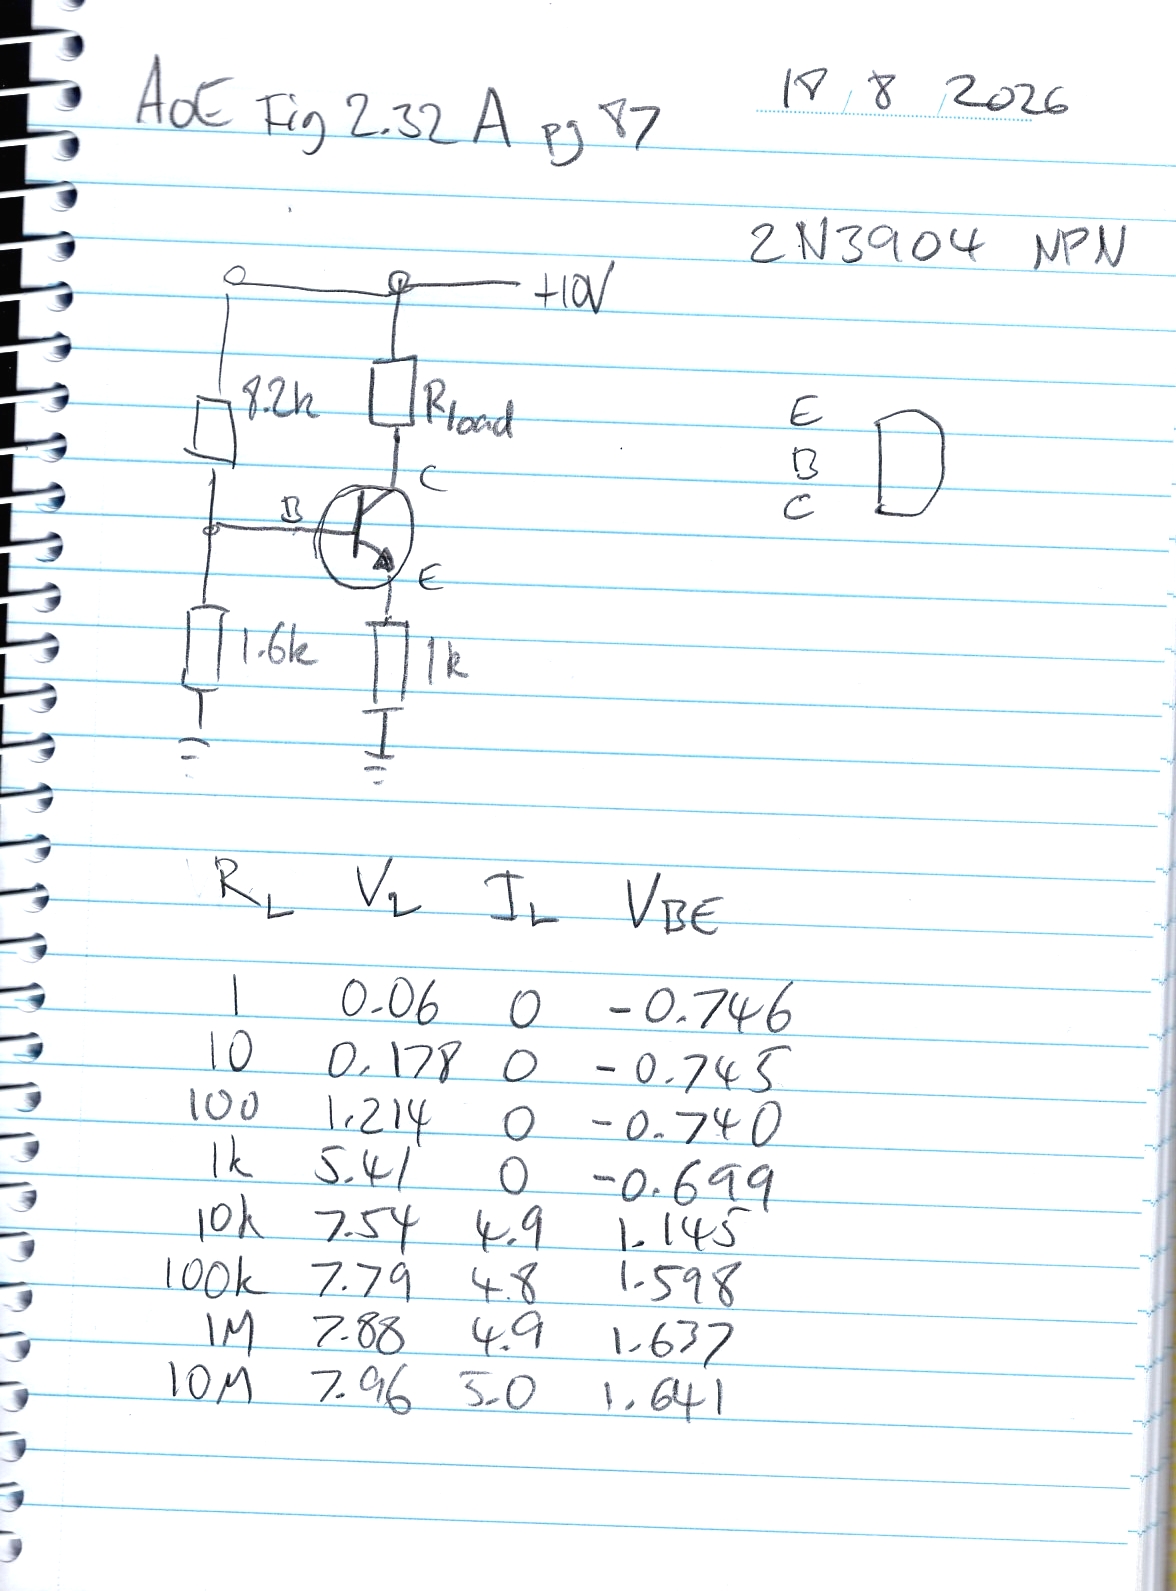 AoE Fig 2.32 A pg 87
18 / 8 / 2026
2N3904 NPN
+10V
8.2k
Rload
C
B
E
1.6k
1k
E
B
C
RL VL IL VBE
1 0.06 0 -0.746
10 0.178 0 -0.745
100 1.214 0 -0.740
1k 5.41 0 -0.699
10k 7.54 4.9 1.145
100k 7.79 4.8 1.598
1M 7.88 4.9 1.637
10M 7.96 5.0 1.641